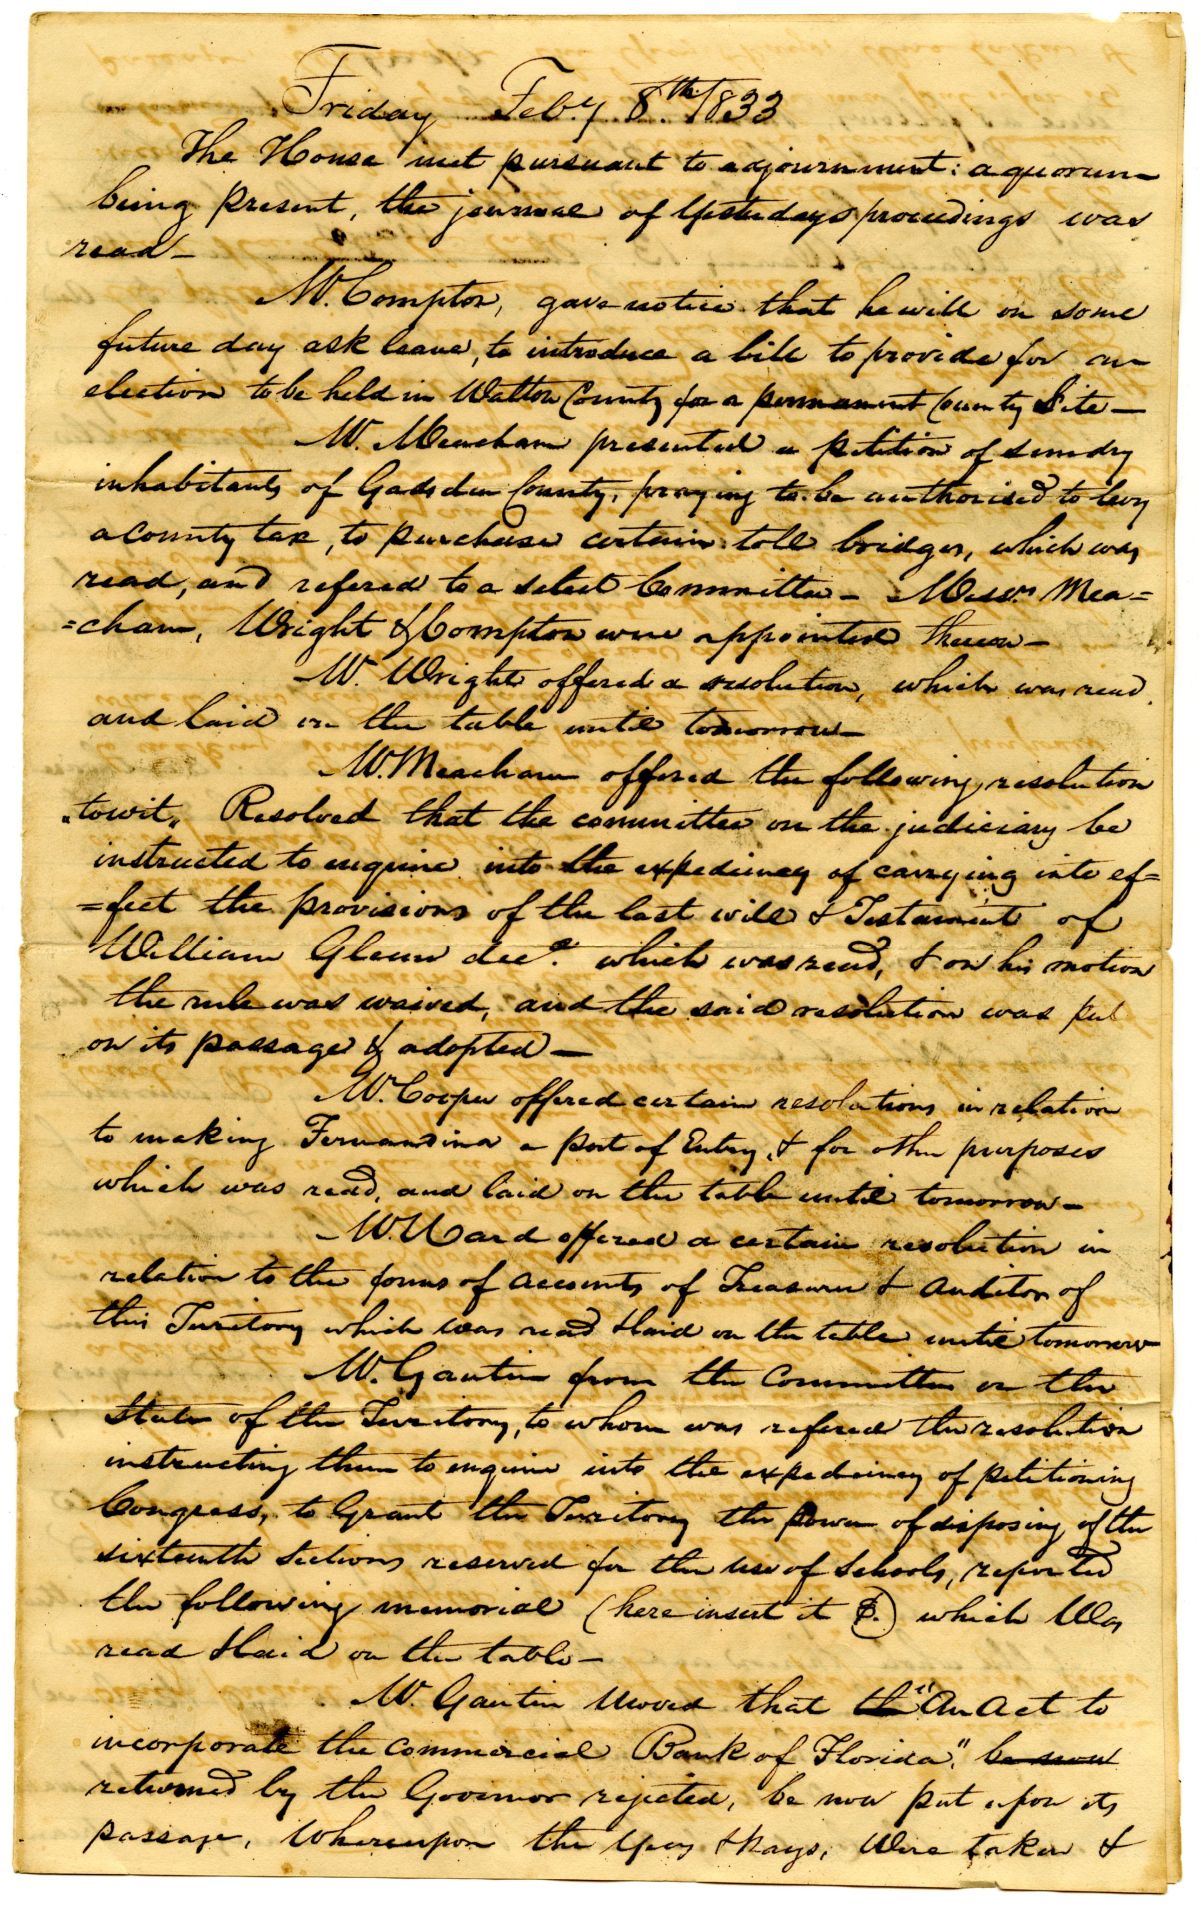 Friday Feby 8th 1833
The House met pursuant to adjournment: a quorum
being present, the journal of Yesterdays proceedings was
read—
Mr. Compton, gave notice that he will on some
future day ask leave, to introduce a bill to provide for an
election to be held in Walton County for a permanent County Site—
Mr. Meacham presented a petition of sundry
inhabitants of Gadsden County, praying to be authorised to levy
a county tax, to purchase certain toll bridges, which was
read, and refered to a select Committee— Messrs Mea=
=cham, Wright & Compton were appointed thereon—
Mr. Wright offered a resolution, which was read
and laid on the table until tomorrow—
Mr. Meacham offered the following resolution
"towit" Resolved that the committee on the judiciary be
instructed to enquire into the expediency of carrying into ef=
=fect the provisions of the last will & Testament of
William Glenn decd. which was read, & on his motion
the rule was waived, and the said resolution was put
on its passage & adopted—
Mr. Cooper offered certain resolutions in relation
to making Fernandina a port of Entry, & for other purposes
which was read, and laid on the table until tomorrow—
Mr. Ward offered a certain resolution in
relation to the forms of accounts of Treasurer & Auditor of
this Territory which was read & laid on the table until tomorrow
Mr. Gautier from the Committee on the
State of the Territory, to whom was refered the resolution
instructing them to enquire into the expediency of petitioning
Congress, to Grant the Territory the power of disposing of the
sixteenth sections reserved for the use of Schools, reported
the following memorial (here insert it) which Was
read & laid on the table—
Mr. Gautier Moved that the "An Act to
incorporate the Commercial Bank of Florida", be now
returned by the Governor rejected, be now put upon its
passage, Whereupon the Yeas & Nays, Were taken &